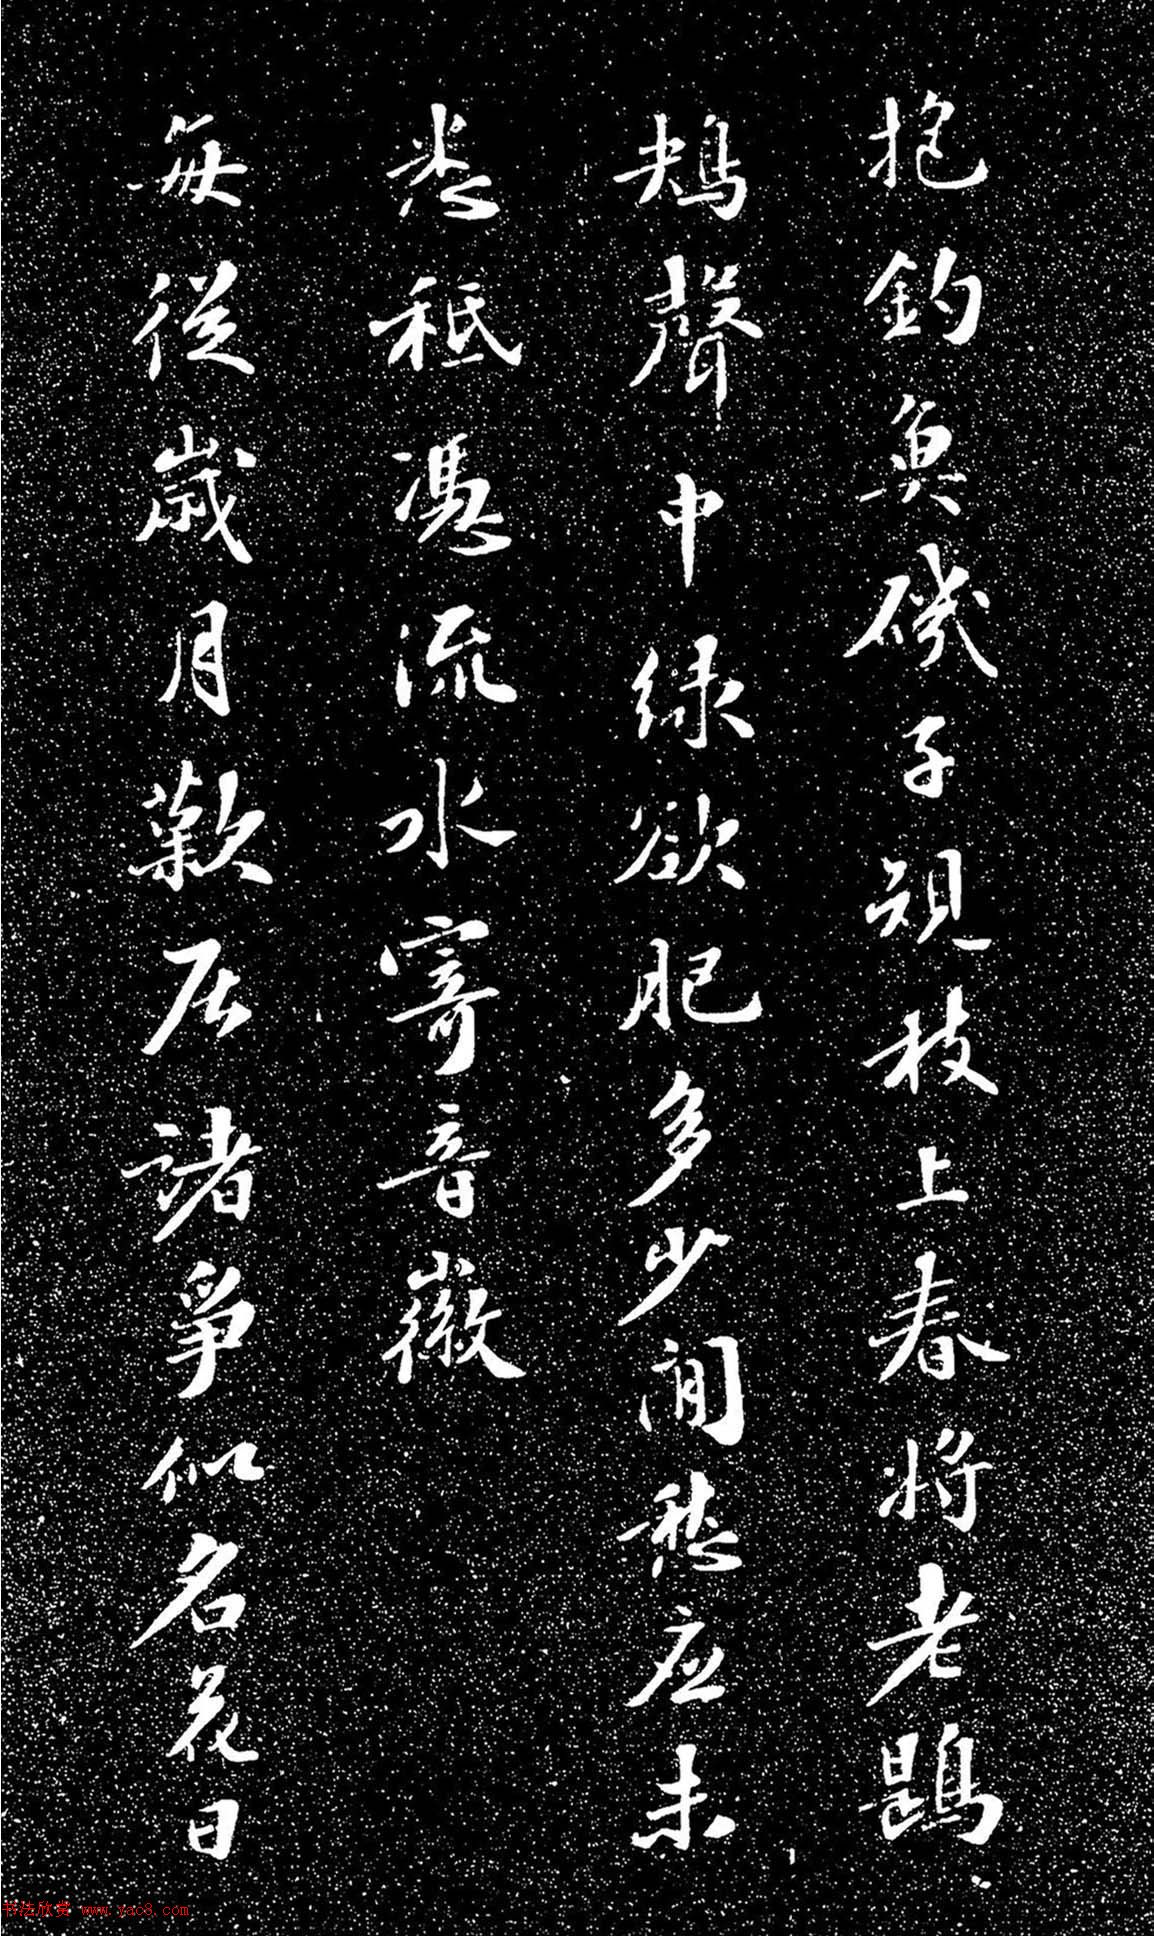 抱釣魚磯子規枝上春將老鶗
鴂聲中綠欲肥多少閒愁應未
悉秪憑流水寄音徽
每從歲月歎居諸爭似名花日
书法欣赏 www.yac8.com